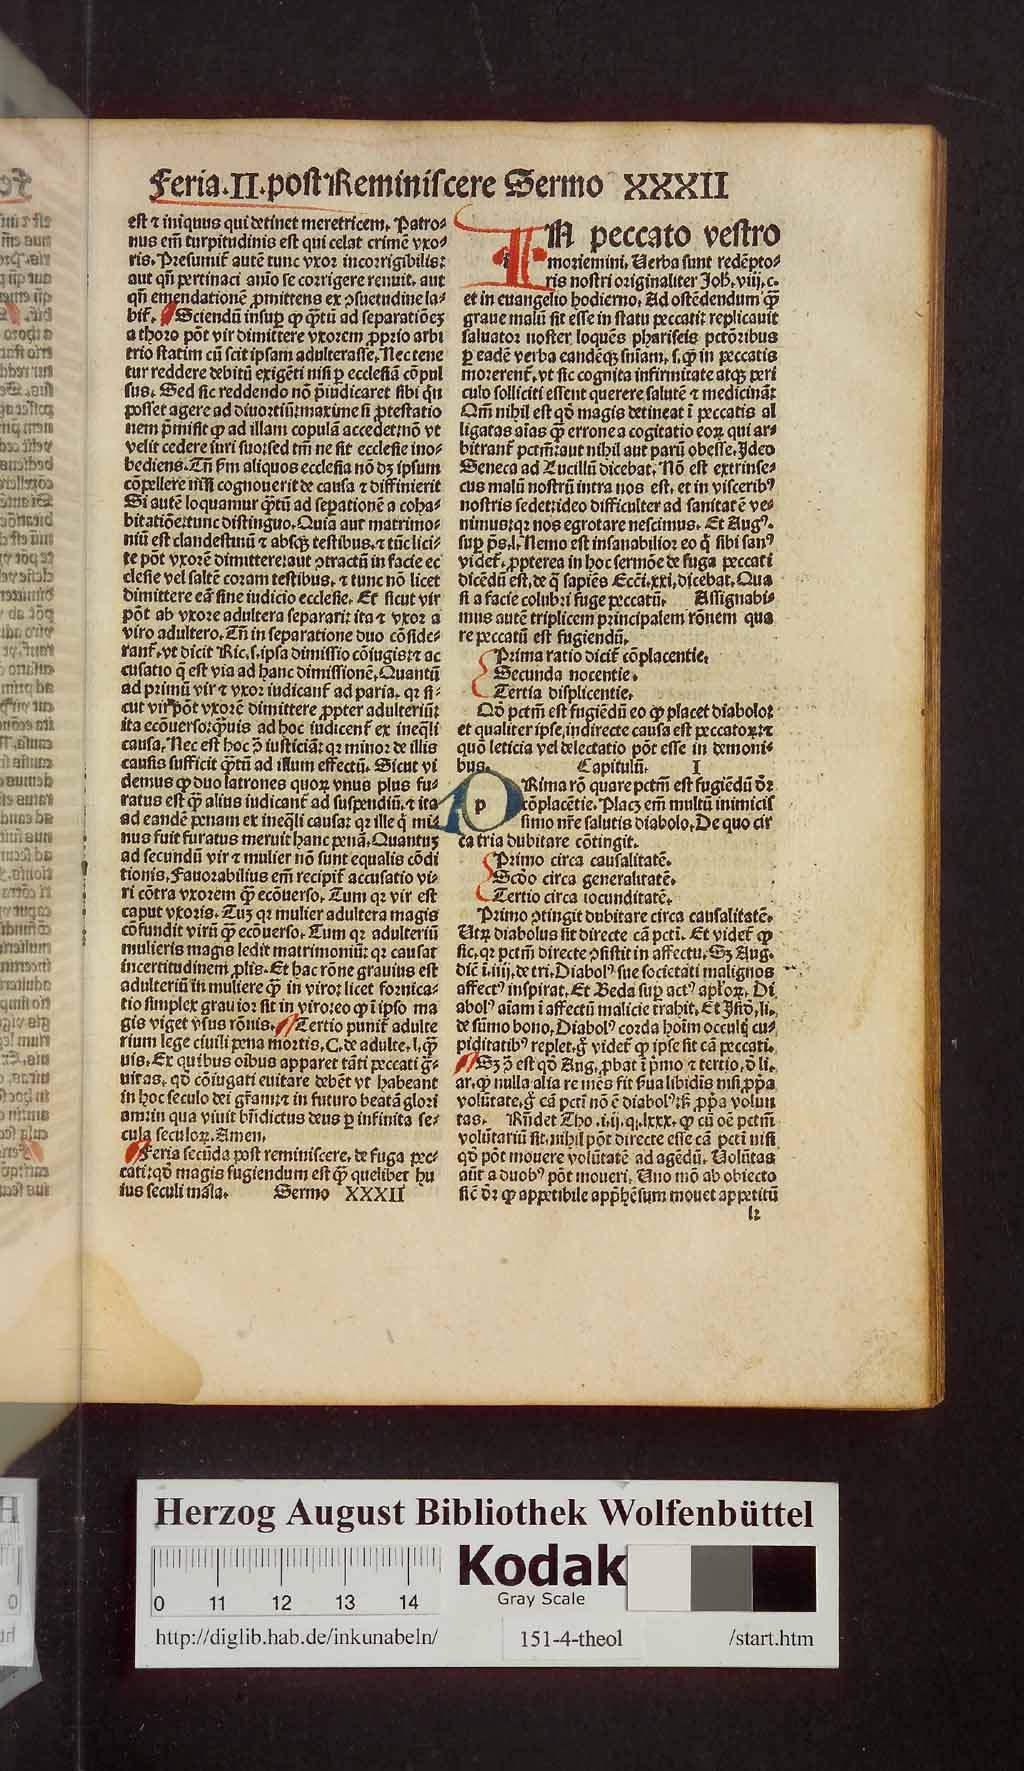 Feria.II.post Reminiscere Sermo XXXII
est ⁊ iniquus qui detinet meretricem. Patro-
nus em̄ turpitudinis est qui celat crimē vxo-
ris. Presumit᷑ autē tunc vxor incorrigibilis:
aut qn̄ pertinaci aīo se corrigere renuit. aut
qn̄ emendationē ꝓmittens ex ↄsuetudine la-
bit᷑. Sciendū insuꝑ ꝙ ꝙ̄tū ad separationēꝫ
a thoro pōt vir dimittere vxorem ꝓprio arbi
trio statim cū scit ipsam adulterasse. Nec tene
tur reddere debitū exigēti nisi ꝑ ecclesiā cōpul
sus. Sed sic reddendo nō p̄iudicaret sibi q̄n
posset agere ad diuortiū: maxime si ꝓtestatio
nem p̄misit ꝙ ad illam copulā accedet: nō vt
velit cedere iuri suo: sed tm̄ ne sit ecclesie ino-
bediens. Tn̄ ẜm aliquos ecclesia nō dꝫ ipsum
cōpellere nisi cognouerit de causa ⁊ diffinierit
Si autē loquamur ꝙ̄tū ad sepationē a coha-
bitatiōe: tunc distinguo. Quia aut matrimo-
niū est clandestinū ⁊ absqꝫ testibus. ⁊ tūc lici-
te pōt vxorē dimittere: aut ↄtractū in facie ec
clesie vel saltē coram testibus. ⁊ tunc nō licet
dimittere eā sine iudicio ecclesie. Et sicut vir
pōt ab vxore adultera separari: ita ⁊ vxor a
viro adultero. Tn̄ in separatione duo cōside-
rant᷑. vt dicit Ric. s. ipsa dimissio cōiugis: ⁊ ac
cusatio q̄ est via ad hanc dimissionē. Quantū
ad primū vir ⁊ vxor iudicant᷑ ad paria. qꝛ si-
cut vir pōt vxorē dimittere ꝓpter adulteriū:
ita ecōuerso: ꝙ̄uis ad hoc iudicent᷑ ex ineq̄li
causa. Nec est hoc ↄ̄ iusticiā: qꝛ minor de illis
causis sufficit ꝙ̄tū ad illum effectū. Sicut vi
demus ꝙ duo latrones quoꝝ vnus plus fu-
ratus est ꝙ̄ alius iudicant᷑ ad suspendiū. ⁊ ita
ad eandē penam ex ineq̄li causa: qꝛ ille q̄ mi-
nus fuit furatus meruit hanc penā. Quantuꝫ
ad secundū vir ⁊ mulier nō sunt equalis cōdi
tionis. Fauorabilius em̄ recipit᷑ accusatio vi-
ri cōtra vxorem ꝙ̄ ecōuerso. Tum qꝛ vir est
caput vxoris. Tuꝫ qꝛ mulier adultera magis
cōfundit virū ꝙ̄ ecōuerso. Tum qꝛ adulteriū
mulieris magis ledit matrimoniū: qꝛ causat
incertitudinem ꝓlis. Et hac rōne grauius est
adulteriū in muliere ꝙ̄ in viro: licet fornica-
tio simplex grauior sit in viro: eo ꝙ ī ipso ma
gis viget vsus rōnis. Tertio punit᷑ adulte
rium lege ciuili pena mortis. C. de adulte. l. ꝙ̄
uis. Ex quibus oībus apparet tāti peccati ḡ-
uitas. qd̄ cōiugati euitare debēt vt habeant
in hoc seculo dei gr̄am: ⁊ in futuro beatā glori
am: in qua viuit bn̄dictus deus ꝑ infinita se-
cula seculoꝝ. Amen.
Feria secūda post reminiscere. de fuga pec-
cati: qd̄ magis fugiendum est ꝙ̄ quelibet hu
ius seculi mala. Sermo XXXII
IN peccato vestro
moriemini. Uerba sunt redēpto-
ris nostri originaliter Joh̄. viij. c.
et in euangelio hodierno. Ad ostēdendum ꝙ̄
graue malū sit esse in statu peccati: replicauit
saluator noster loquēs phariseis pctōribus
ꝑ eadē verba eandēqꝫ sn̄iam. s. ꝙ in peccatis
morerent᷑. vt sic cognita infirmitate atqꝫ peri
culo solliciti essent querere salutē ⁊ medicinā:
Qm̄ nihil est qd̄ magis detineat ī peccatis al
ligatas aīas ꝙ̄ errone a cogitatio eoꝝ qui ar-
bitrant᷑ pctm̄: aut nihil aut parū obesse. Ideo
Seneca ad Lucillū dicebat. Nō est extrinse-
cus malū nostrū intra nos est. et in visceribꝰ
nostris sedet: ideo difficulter ad sanitatē ve-
nimus: qꝛ nos egrotare nescimus. Et Augꝰ.
suꝑ ps̄. l. Nemo est insanabilior eo q̄ sibi sanꝰ
videt᷑. ꝓpterea in hoc sermōe de fuga peccati
dicēdū est. de q̄ sapiēs Eccī. xxi. dicebat. Qua
si a facie colubri fuge peccatū. Assignabi-
mus autē triplicem principalem rōnem qua
re peccatū est fugiendū.
Prima ratio dicit᷑ cōplacentie.
Secunda nocentie.
Tertia displicentie.
Qd̄ pctm̄ est fugiēdū eo ꝙ placet diabolo:
et qualiter ipse. indirecte causa est peccatoꝝ: ⁊
quō leticia vel delectatio pōt esse in demoni-
bus. Capitulū. I
PRima rō quare pctm̄ est fugiēdū dr̄
cōplacētie. Placꝫ em̄ multū inimicis
simo nr̄e salutis diabolo. De quo cir
ca tria dubitare cōtingit.
Primo circa causalitatē.
Scd̄o circa generalitatē.
Tertio circa iocunditatē.
Primo ↄtingit dubitare circa causalitatē.
Utꝝ diabolus sit directe cā pcti. Et videt᷑ ꝙ
sic. qꝛ pctm̄ directe ↄsistit in affectu. Sꝫ Aug.
dic̄ī. iiij. de tri. Diabolꝰ sue societati malignos
affectꝰ inspirat. Et Beda suꝑ actꝰ apl̄oꝝ. Di
abolꝰ aīam ī affectū malicie trahit. Et Isid. li.
de sūmo bono. Diabolꝰ corda hoīm occultꝭ cu-
piditatibꝰ replet. g̊ videt᷑ ꝙ ipse sit cā peccati.
Sꝫ ↄ̄ est qd̄ Aug. ꝓbat ī p̄mo ⁊ tertio. d̄ li.
ar. ꝙ nulla alia re mēs fit ẜua libidīs nisi ꝓp̄a
volūtate. g̊ cā pcti nō ē diabolꝰ: sꝫ ꝓp̄a volun
tas. Rn̄det Tho .i.ij.q.lxxx. ꝙ cū oē pctm̄
volūtariū sit. nihil pōt directe esse cā pcti nisi
qd̄ pōt mouere volūtatē ad agēdū. Uolūtas
aūt a duobꝰ pōt moueri. Uno mō ab obiecto
sic̄ dr̄ ꝙ appetibile app̄hēsum mouet appetitū
k
Herzog August Bibliothek Wolfenbüttel
Kodak
Gray Scale
0 11 12 13 14
http://diglib.hab.de/inkunabeln/ 151-4-theol /start.htm